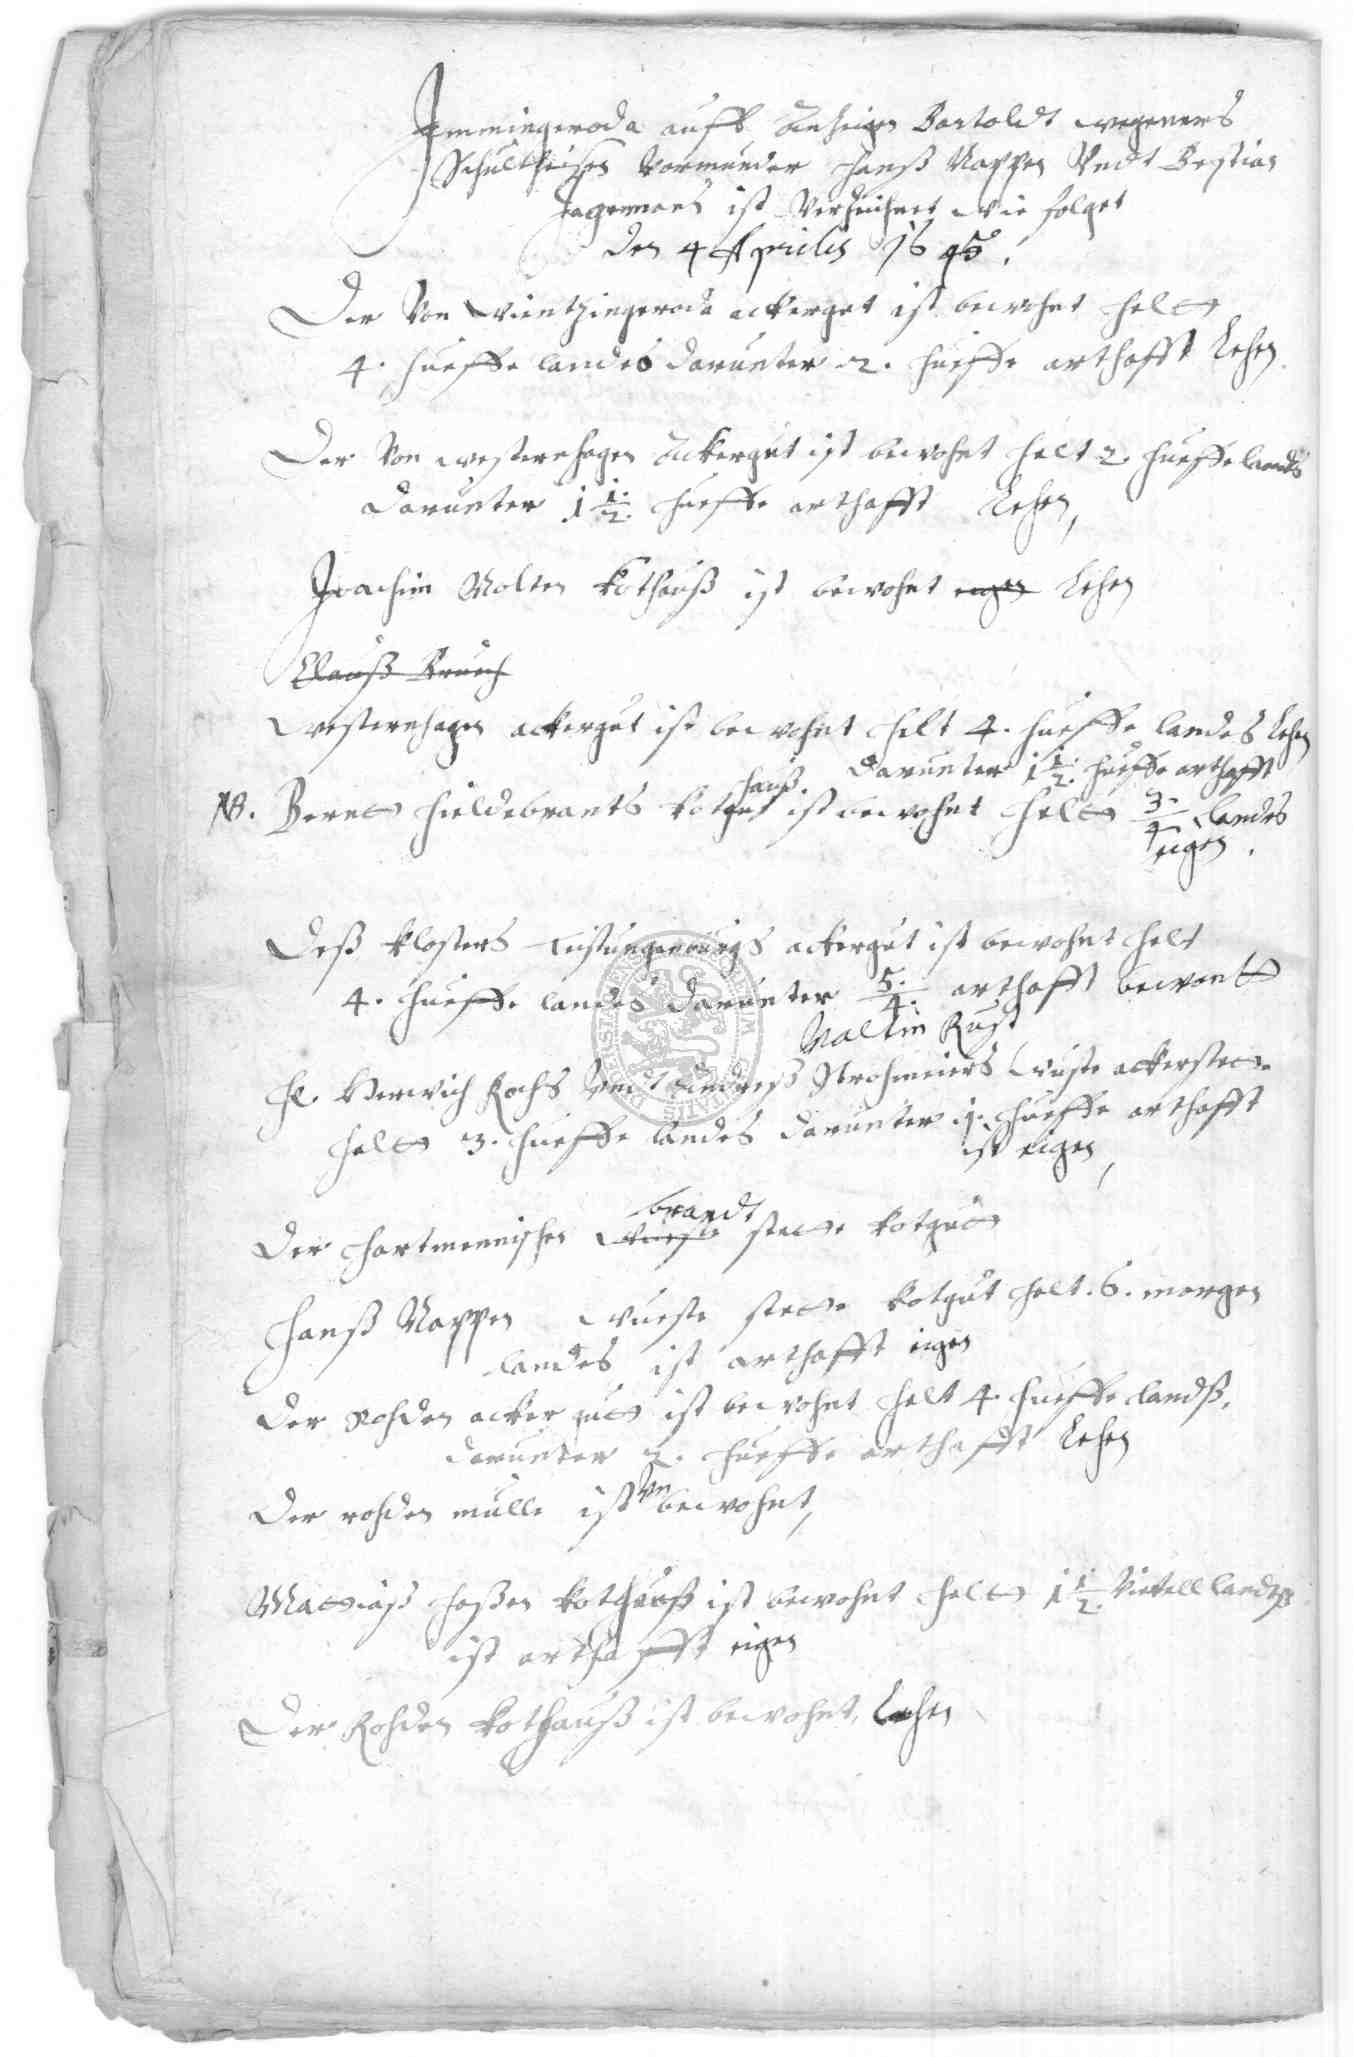 Immingeroda auff Anzeigen Bartoldt wegeners
Schultheisen Vormunder Hanß Nappen Vndt Bestian
Jagemans ist Verzeichnet wie folget
den 4 Aprilis 1645.
Der Von Wintzingeroda ackergut ist bewohnt helt
4. hueffe landes darunter 2. hueffe arthafft Lehen
Der Von westernhagen Ackergut ist bewohnt helt 2. hueffe landes
darunter 1 1/2 hueffe arthafft Lehen,
Joachim Molten kothauß ist bewohnt eigen Lehen
Clauß Bruch
Westernhagen ackergut ist bewohnt helt 4. hueffe landes Lehen
darunter 1 1/2 hueffe arthafft
hauß.
NB. Bernt Hieldebrants kotgut ist bewohnt helt 3/4 landes
eigen.
Deß klosters Teistungenburgs ackergut ist bewohnt helt
4. hueffe landes darunter 5/4. arthafft bewont
Valtin Rust
H. Herwich Kochs Vndt Andreß Strohmeiers wuste ackerstete
helt 3. hueffe landes darunter 1. hueffe arthafft
ist eigen,
brandt
Der Hartmennischen wueste stete kotgut
Hanß Nappen wueste stete kotgut helt. 6. morgen
landes ist arthafft eigen
Der Rohden acker gut ist bewohnt helt 4. hueffe landß,
darunter 2. hueffe arthafft Lehen
Der rohden mulle ist vnbewohnt,
Mattiaß Haßen kothauß ist bewohnt helt 1 1/2 Viertell landeß
ist arthafft eigen
Der Rohden kothauß ist bewohnt, Lehen